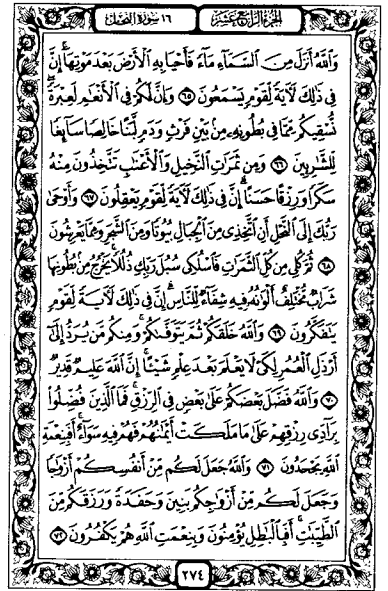 الجزء الرابع عشر ١٦ سورة النحل
وَٱللَّهُ أَنزَلَ مِنَ ٱلسَّمَآءِ مَآءً فَأَحْيَا بِهِ ٱلْأَرْضَ بَعْدَ مَوْتِهَآ إِنَّ
فِى ذَٰلِكَ لَـَٔايَةً لِّقَوْمٍ يَسْمَعُونَ ٦٥ وَإِنَّ لَكُمْ فِى ٱلْأَنْعَٰمِ لَعِبْرَةً
نُّسْقِيكُم مِّمَّا فِى بُطُونِهِۦ مِنۢ بَيْنِ فَرْثٍ وَدَمٍ لَّبَنًا خَالِصًا سَآئِغًا
لِّلشَّٰرِبِينَ ٦٦ وَمِن ثَمَرَٰتِ ٱلنَّخِيلِ وَٱلْأَعْنَٰبِ تَتَّخِذُونَ مِنْهُ
سَكَرًا وَرِزْقًا حَسَنًا إِنَّ فِى ذَٰلِكَ لَـَٔايَةً لِّقَوْمٍ يَعْقِلُونَ ٦٧ وَأَوْحَىٰ
رَبُّكَ إِلَى ٱلنَّحْلِ أَنِ ٱتَّخِذِى مِنَ ٱلْجِبَالِ بُيُوتًا وَمِنَ ٱلشَّجَرِ وَمِمَّا يَعْرِشُونَ
٦٨ ثُمَّ كُلِى مِن كُلِّ ٱلثَّمَرَٰتِ فَٱسْلُكِى سُبُلَ رَبِّكِ ذُلُلًا يَخْرُجُ مِنۢ بُطُونِهَا
شَرَابٌ مُّخْتَلِفٌ أَلْوَٰنُهُۥ فِيهِ شِفَآءٌ لِّلنَّاسِ إِنَّ فِى ذَٰلِكَ لَـَٔايَةً لِّقَوْمٍ
يَتَفَكَّرُونَ ٦٩ وَٱللَّهُ خَلَقَكُمْ ثُمَّ يَتَوَفَّىٰكُمْ وَمِنكُم مَّن يُرَدُّ إِلَىٰٓ
أَرْذَلِ ٱلْعُمُرِ لِكَىْ لَا يَعْلَمَ بَعْدَ عِلْمٍ شَيْـًٔا إِنَّ ٱللَّهَ عَلِيمٌ قَدِيرٌ
٧٠ وَٱللَّهُ فَضَّلَ بَعْضَكُمْ عَلَىٰ بَعْضٍ فِى ٱلرِّزْقِ فَمَا ٱلَّذِينَ فُضِّلُوا۟
بِرَآدِّى رِزْقِهِمْ عَلَىٰ مَا مَلَكَتْ أَيْمَٰنُهُمْ فَهُمْ فِيهِ سَوَآءٌ أَفَبِنِعْمَةِ
ٱللَّهِ يَجْحَدُونَ ٧١ وَٱللَّهُ جَعَلَ لَكُم مِّنْ أَنفُسِكُمْ أَزْوَٰجًا
وَجَعَلَ لَكُم مِّنْ أَزْوَٰجِكُم بَنِينَ وَحَفَدَةً وَرَزَقَكُم مِّنَ
ٱلطَّيِّبَٰتِ أَفَبِٱلْبَٰطِلِ يُؤْمِنُونَ وَبِنِعْمَتِ ٱللَّهِ هُمْ يَكْفُرُونَ ٧٢
٢٧٤